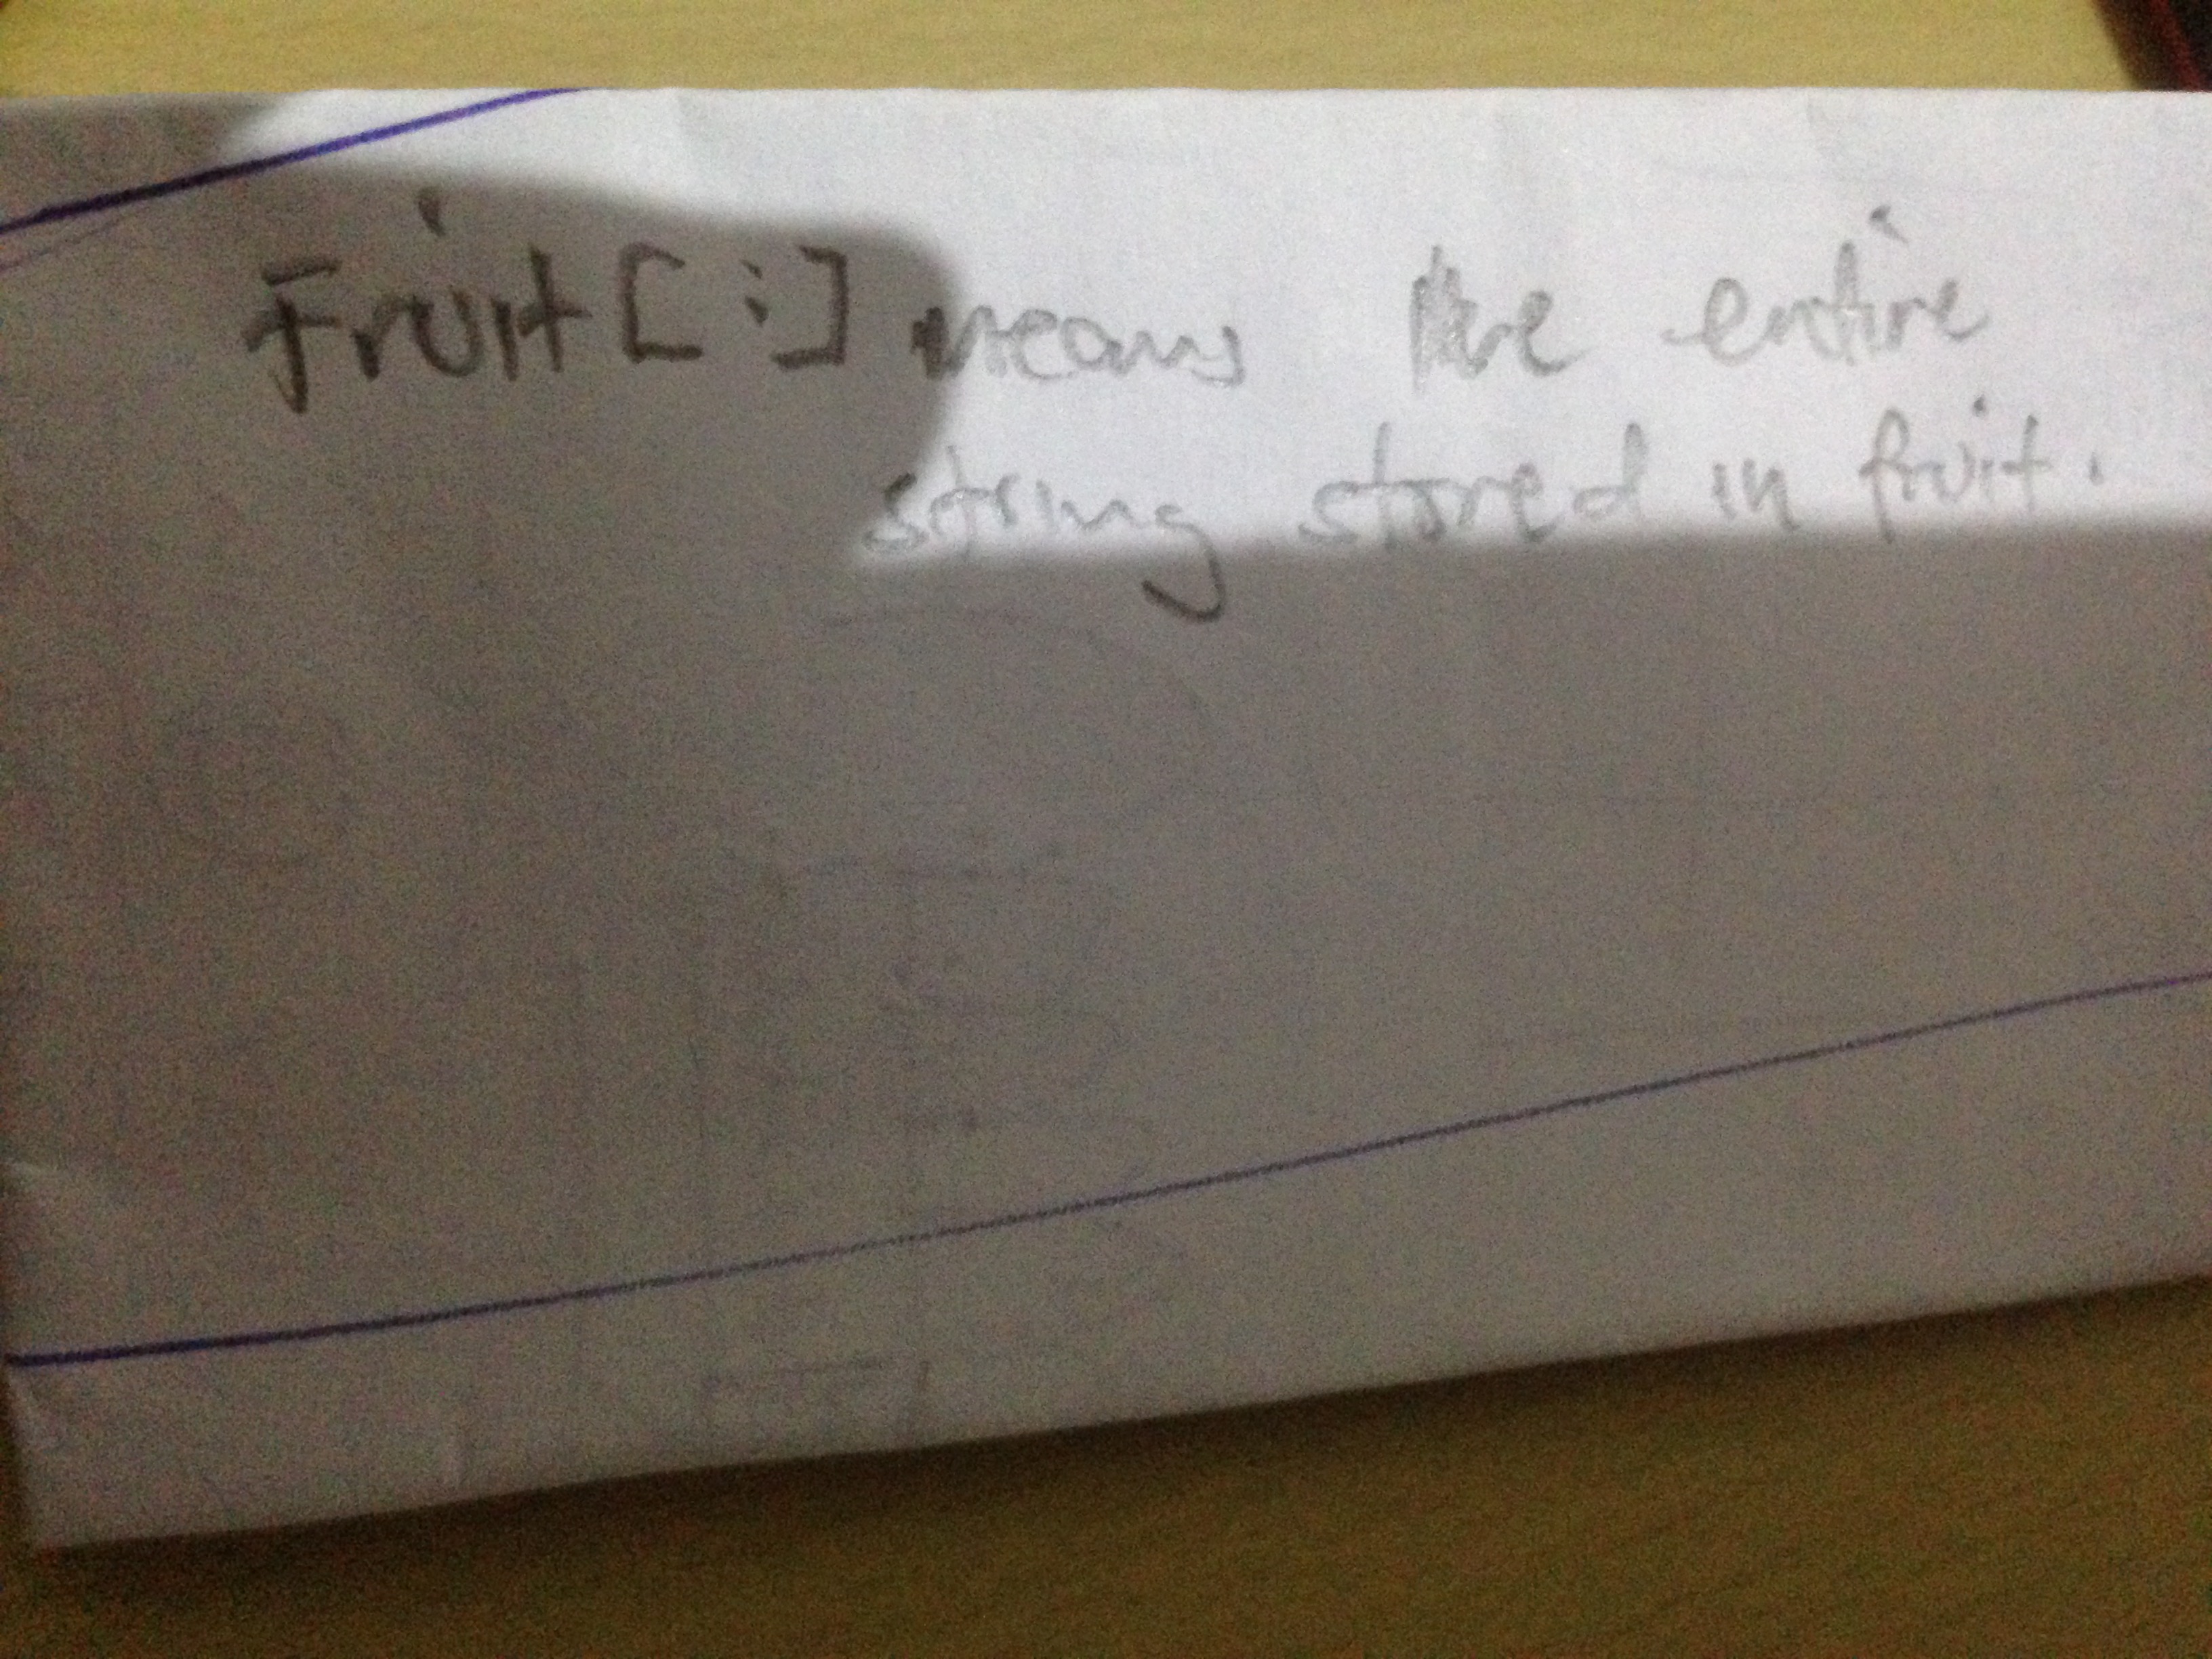 Fruit[:] means the entire
string stored in fruit.